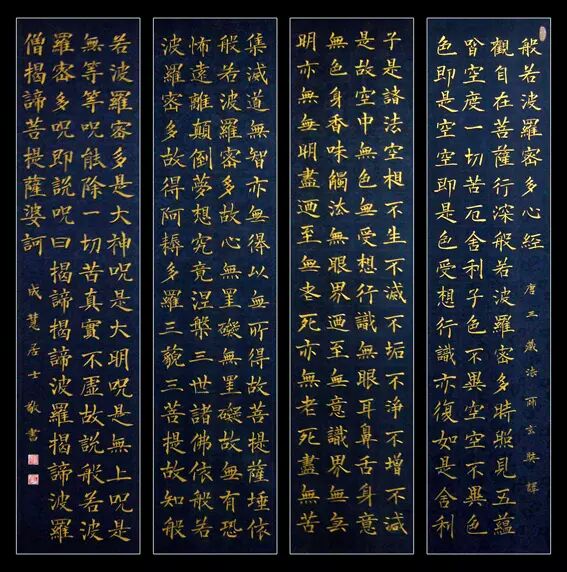 般若波羅密多心經 唐三藏法師玄奘譯
觀自在菩薩行深般若波羅密多時照見五蘊
皆空度一切苦厄舍利子色不異空空不異色
色即是空空即是色受想行識亦復如是舍利
子是諸法空想不生不滅不垢不淨不增不減
是故空中無色無受想行識無眼耳鼻舌身意
無色身香味觸法無眼界迺至無意識界無無
明亦無無明盡迺至無老死亦無老死盡無苦
集滅道無智亦無得以無所得故菩提薩埵依
般若波羅密多故心無罣礙無罣礙故無有恐
怖遠離顛倒夢想究竟涅槃三世諸佛依般若
波羅密多故得阿耨多羅三藐三菩提故知般
若波羅密多是大神咒是大明咒是無上咒是
無等等咒能除一切苦真實不虛故說般若波
羅密多咒即說咒曰揭諦揭諦波羅揭諦波羅
僧揭諦菩提薩婆訶 成慧居士敬書